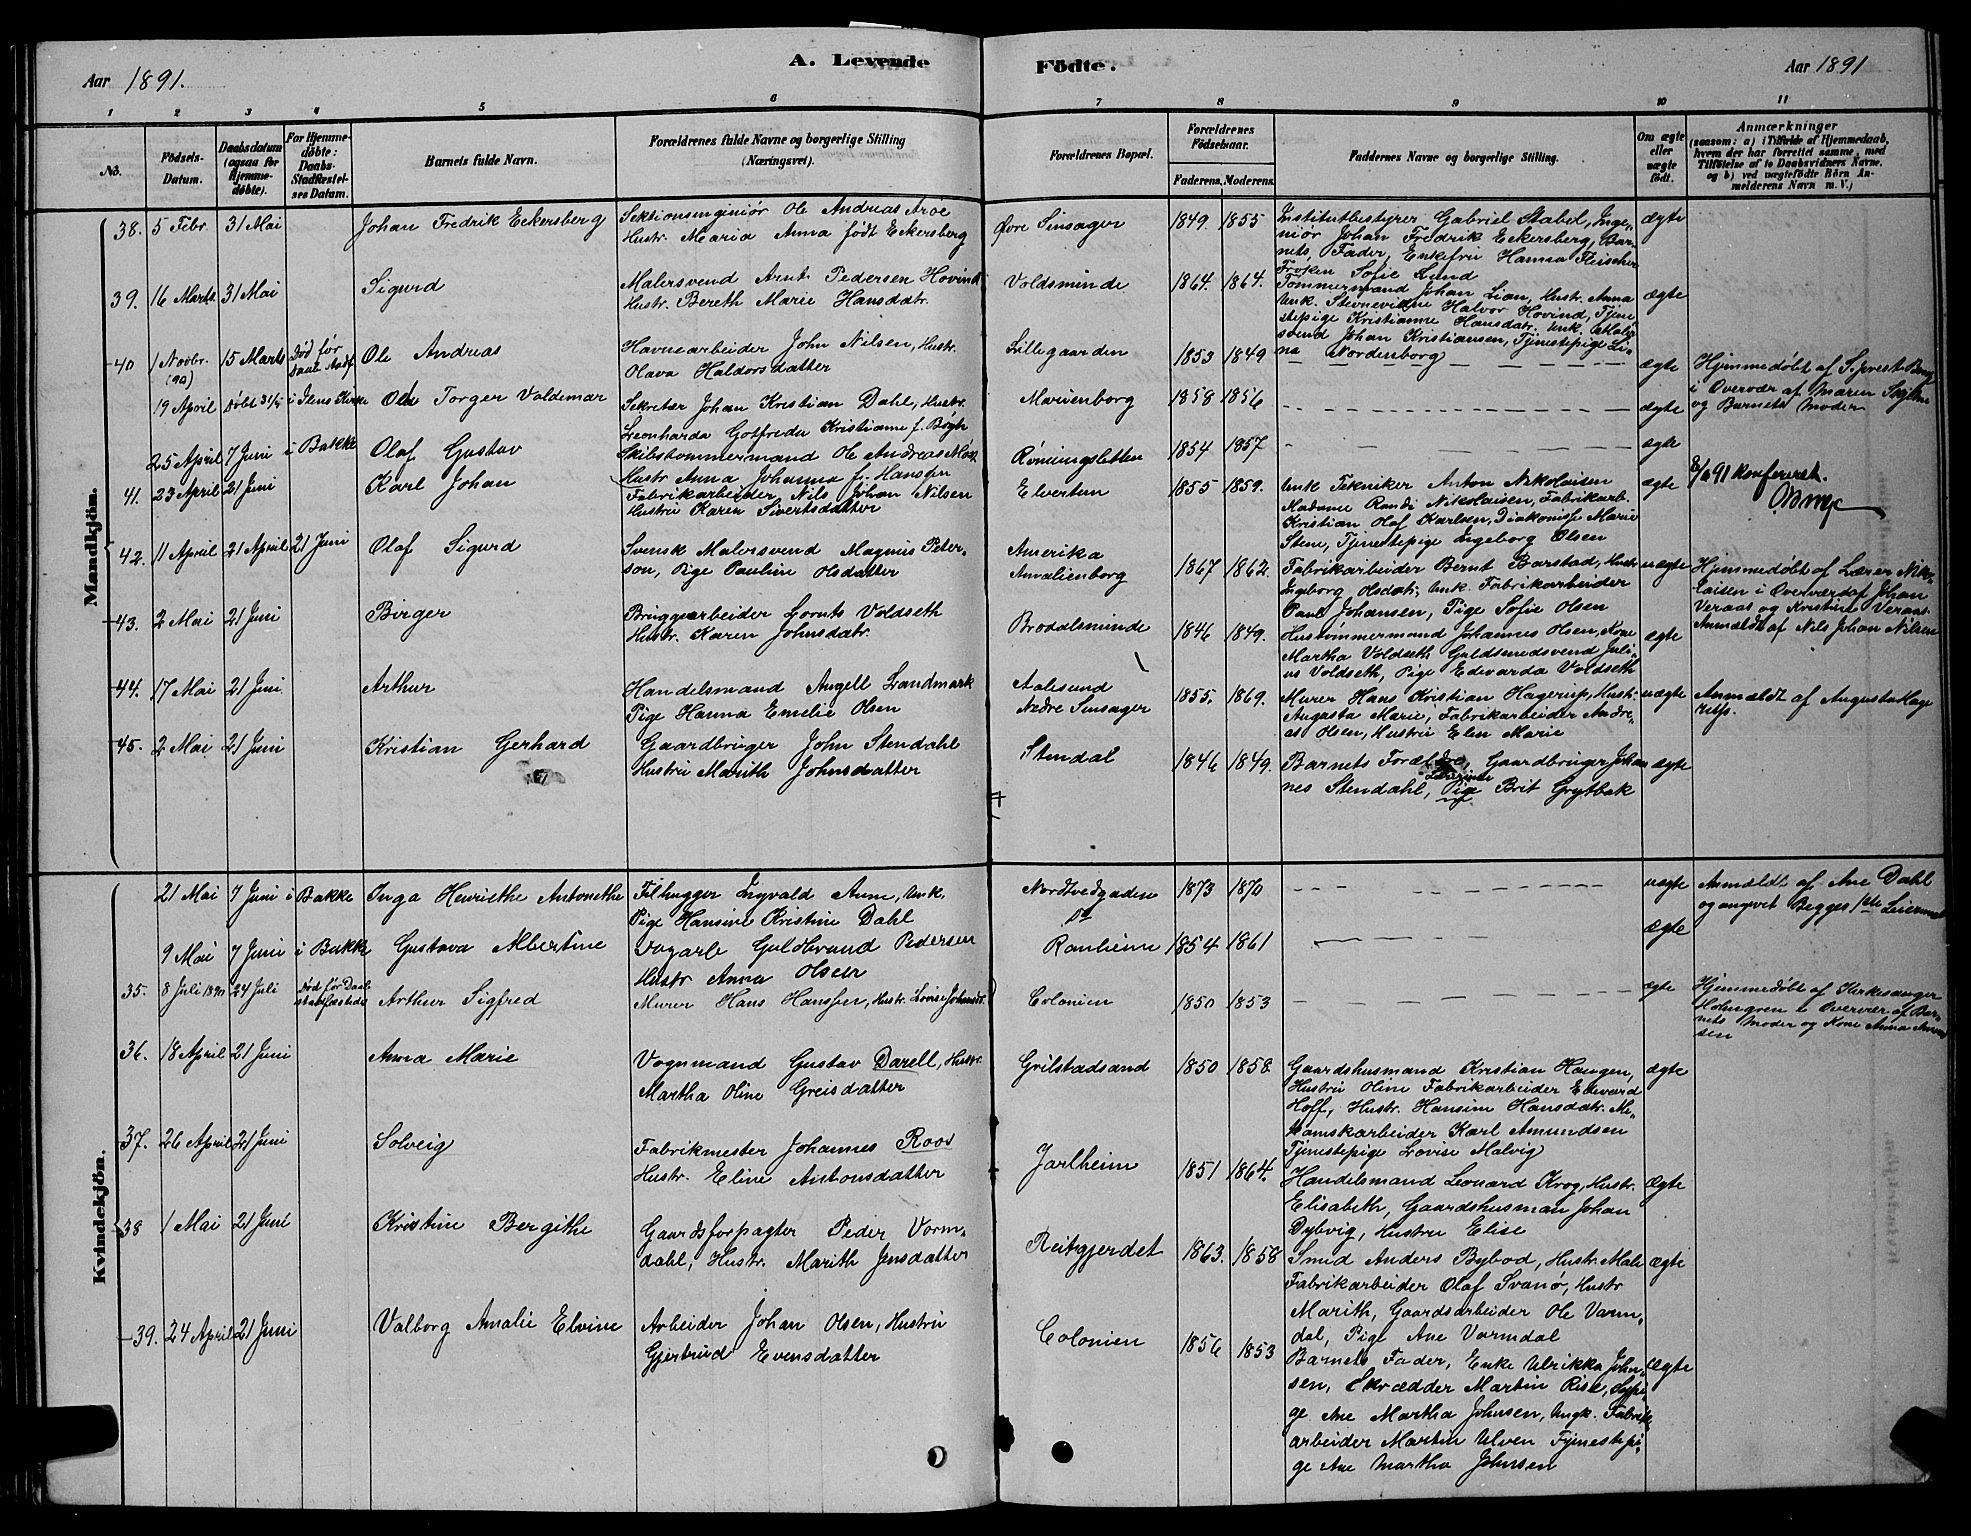 Aar 1891.
A. Levende
Födte.
Aar 1891
1 2 3 4 5 6 7 8 9 10 11
No.
Födsels-Datum.
Daabsdatum (ogsaa for Hjemme-döbte).
For Hjemme-döbte: Daabs-Stadfæstel-ses Datum.
Barnets fulde Navn.
Forældrenes fulde Navne og borgerlige Stilling (Næringsvei).
Forældrenes Bopæl.
Forældrenes Födselsaar.
Faderens. Moderens.
Faddernes Navne og borgerlige Stilling.
Om ægte eller uægte födt.
Anmærkninger
(saasom: a) i Tilfælde af Hjemmedaab, hvem der har forrettet samme, med Tilföielse af to Daabsvidners Navne, og b) ved uægtefödte Börn An-melderens Navn m. V.)
Mandkjön.
38. 5 Febr. 31 Mai Johan Fredrik Eckersberg
Sektionsingeniör Ole Andreas Aroe
Hustr. Maria Anna födt Eckersberg
Øvre Sinsager 1849. 1855
Institutbestyrer Gabriel Stabel, Inge-
niör Johan Fredrik Eckersberg, Bar-
nets Fader, Enkefru Hanna Fleischer
Fröken Sofie Lund
ægte
39. 16 Marts. 31 Mai Sigurd
Malersvend Arnt Pedersen Hovind
Hustr. Bereth Marie Hansdatr.
Voldsminde 1864. 1864.
Tömmermand Johan Lian, Hustr. Anna
Unk. Stevnevidne Halvor Hovind, Tjene
stepige Kristianne Hansdatr. Unk. Maler
svend Johan Kristiansen, Tjenestepige Li-
na Nordenborg
ægte
40 1 Novbr. (90) 15 Marts Död før Daabs Stadf. Ole Andreas
Havnearbeider John Nilsen, Hustr.
Olava Haldorsdatter
Lillegaarden 1853 1849
ægte
Hjemmedöbt af S. prest
i Overvær af Maren
og Barnets Moder
19 April Döbt 31/5 i Ilens Kirke Ole Torger Valdemar
Sekretær Johan Kristian Dahl, Hustr.
Leonharda Gotfreda Kristianne f. Bøgh
Marienborg 1858 1856
ægte
25 April 7 Juni i Bakke Olaf Gustav
Skibstömmermand Ole Andreas
Hustr Anna Johanna f. Hansen
Rönningsletten 1854 1857
ægte
41. 23 April 21 Juni Karl Johan
Fabrikarbeider Nils Johan Nilsen
Hustru Karen Sivertsdatter
Elvertun 1855 1859.
Unk Tekniker Anton Nikolaisen
Madame Randi Nikolaisen, Fabrikarb.
Kristian Olaf Karlsen, Diakonisse Marie
Stene, Tjenestepige Ingeborg Olsen
ægte
91 konfereret.
42. 11 April 21 April 21 Juni Olaf Sigurd
Svensk Malersvend Magnus Peter-
son, Pige Pauline Olsdatter
Amerika
Amalienborg 1867 1862.
Fabrikarbeider Bernt Barstad, Hustr
Ingeborg Olsdatr., Unk. Fabrikarbeider
Paul Johansen, Pige Sofie Olsen
uægte
Hjemmedöbt af Lærer Nik-
laisen i Overvær af Johan
Veraas og Kristine Veraas.
Anmældt af Nils Johan Nilsen
43. 2 Mai 21 Juni Birger
Bryggearbeider Lornts Voldseth
Hustr. Karen Johnsdatr.
Brodalsminde 1846 1849.
Hustömmermand Johannes Olsen, Kone
Martha Voldseth Guldsmedsvend Juli-
us Voldseth, Pige Edvarda Voldseth
ægte
44. 17 Mai 21 Juni. Arthur
Handelsmand Angell Landmark
Pige Hanna Emelie Olsen
Aalesund
Nedre Sinsager 1855. 1869.
Murer Hans Kristian Hagerup, Hustr.
Augusta Marie, Fabrikarbeider Andre-
as Olsen, Hustru Elen Marie
uægte
Anmældt af Augusta Hage
rup.
45. 2 Mai 21 Juni Kristian Gerhard
Gaardbruger John Stendahl
Hustru Marith Johnsdatter
Stendal 1846 1849.
Barnets Forældre, Gaardbruger Johan
nes Stendahl, Pige Brit Grytbak
ægte
Kvindekjön.
21 Mai 7 Juni i Bakke Inga Henriethe Antonethe
Filhugger Ingvald Aune, Unk.
Pige Hansine Kristine Dahl
Nordtvedgaden 1873 1870
uægte
Anmældt af Ane Dahl
og angivet Begges 1ste Leiermaal
9 Mai 7 Juni i Bakke Gustava Albertine
Guldbrand Pedersen
Hustr Anna Olsen
Ranheim 1854 1861
ægte
35. 8 Juli 1890 24 Juli Död för Daab stadfæstedes Arthur Sigfred
Murer Hans Hanssen, Hustr. Lovise Johnsdt.
Colonien 1850 1853
ægte
Hjemmedöbt af Kirkesanger
Holmgren i Overvær af Bar-
nets Moder og Kone Anna
sen
36. 18 April 21 Juni Anna Marie
Vognmand Gustav Darell, Hustr.
Martha Oline Greisdatter
Grilstadsand 1850 1858.
Gaardshusmand Kristian Haugen,
Hustru Oline Fabrikarbeider Edevard
Hoff, Hustr. Hansine Hansdatr. Me-
kaniskarbeider Karl Amundsen
Tjenestepige Lovise Malvig
ægte
37. 26 April 21 Juni Solveig
Fabrikmester Johannes Roos
Hustr. Eline Antonsdatter
Jarlheim 1851 1864.
Handelsmand Leonard Krog, Hustr.
Elisabeth, Gaardshusman Johan
Dybvig, Hustru Elise
ægte
38 1 Mai 21 Juni Kristine Bergithe
Gaardsforpagter Peder Vorm-
dahl, Hustr. Marith Jensdatter
Reitgjerdet 1863. 1858
Smed Anders Bybod, Hustr. Mali
Fabrikarbeider Olaf Svanö, Hustr
Marith, Gaardsarbeider Ole Varm-
dal, Pige Ane Vormdal
ægte
39. 24 April 21 Juni Valborg Amalie Elvine
Arbeider Johan Olsen, Hustru
Gjertrud Evensdatter
Colonien 1856 1853
Barnets Fader, Enke Ulrikka John-
sen, Skrædder Martin Rise, Sypi-
ge Ane Martha Johnsen, Ungk. Fabrik
arbeider Martin Ulven Tjenestepi-
ge Ane Martha Johnsen
ægte